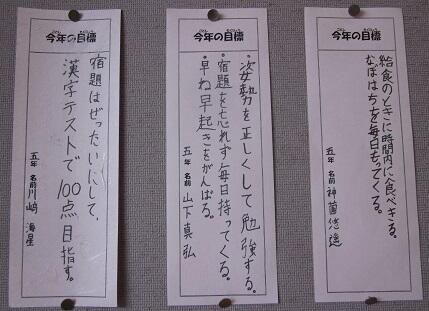 今年の目標
給食のときに時間内に食べきる。
なふきんを毎日もってくる。
五年 名前 神薗悠造
今年の目標
・姿勢を正しくして勉強する。
・宿題を忘れず毎日持ってくる。
・早ね早起きをがんばる。
五年 名前 山下真弘
今年の目標
宿題はぜったいにして、
漢字テストで100点目指す。
五年 名前 川崎 海星